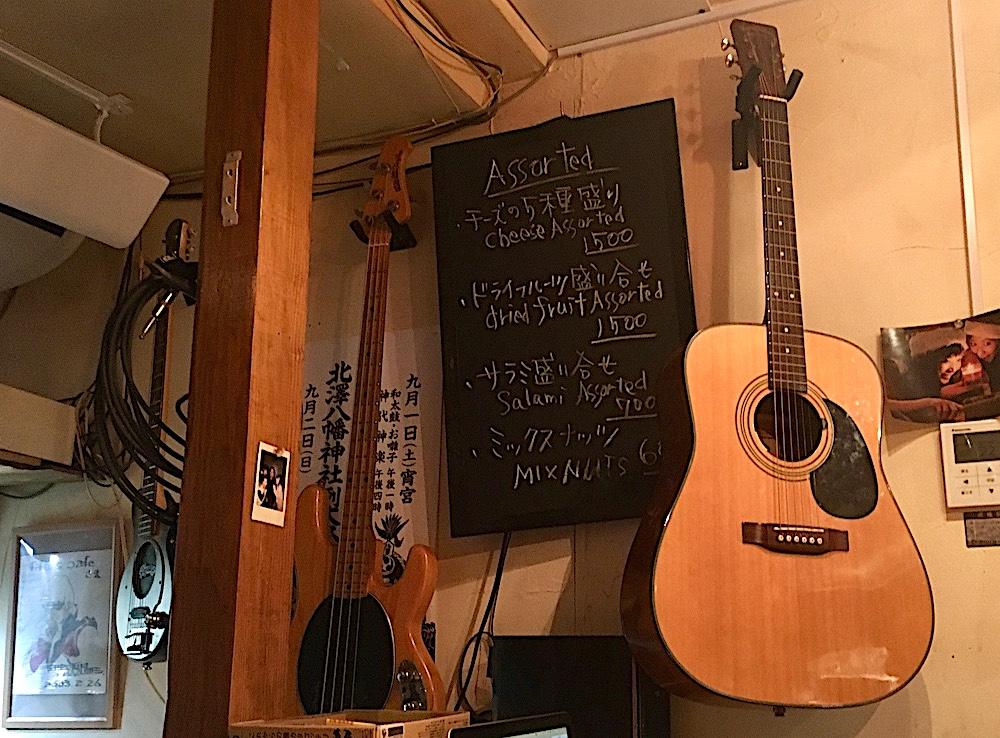 Assorted
・チーズの5種盛り
Cheese Assorted
1500
・ドライフルーツ盛り合せ
dried fruit Assorted
1500
・サラミ盛り合せ
Salami Assorted
700
・ミックスナッツ
MIX NUTS
九月一日(土)宵宮
和太鼓・お囃子 午後一時
神代神楽 午後四時
北澤八幡神社例大
九月二日(日)
cafe
Panasonic